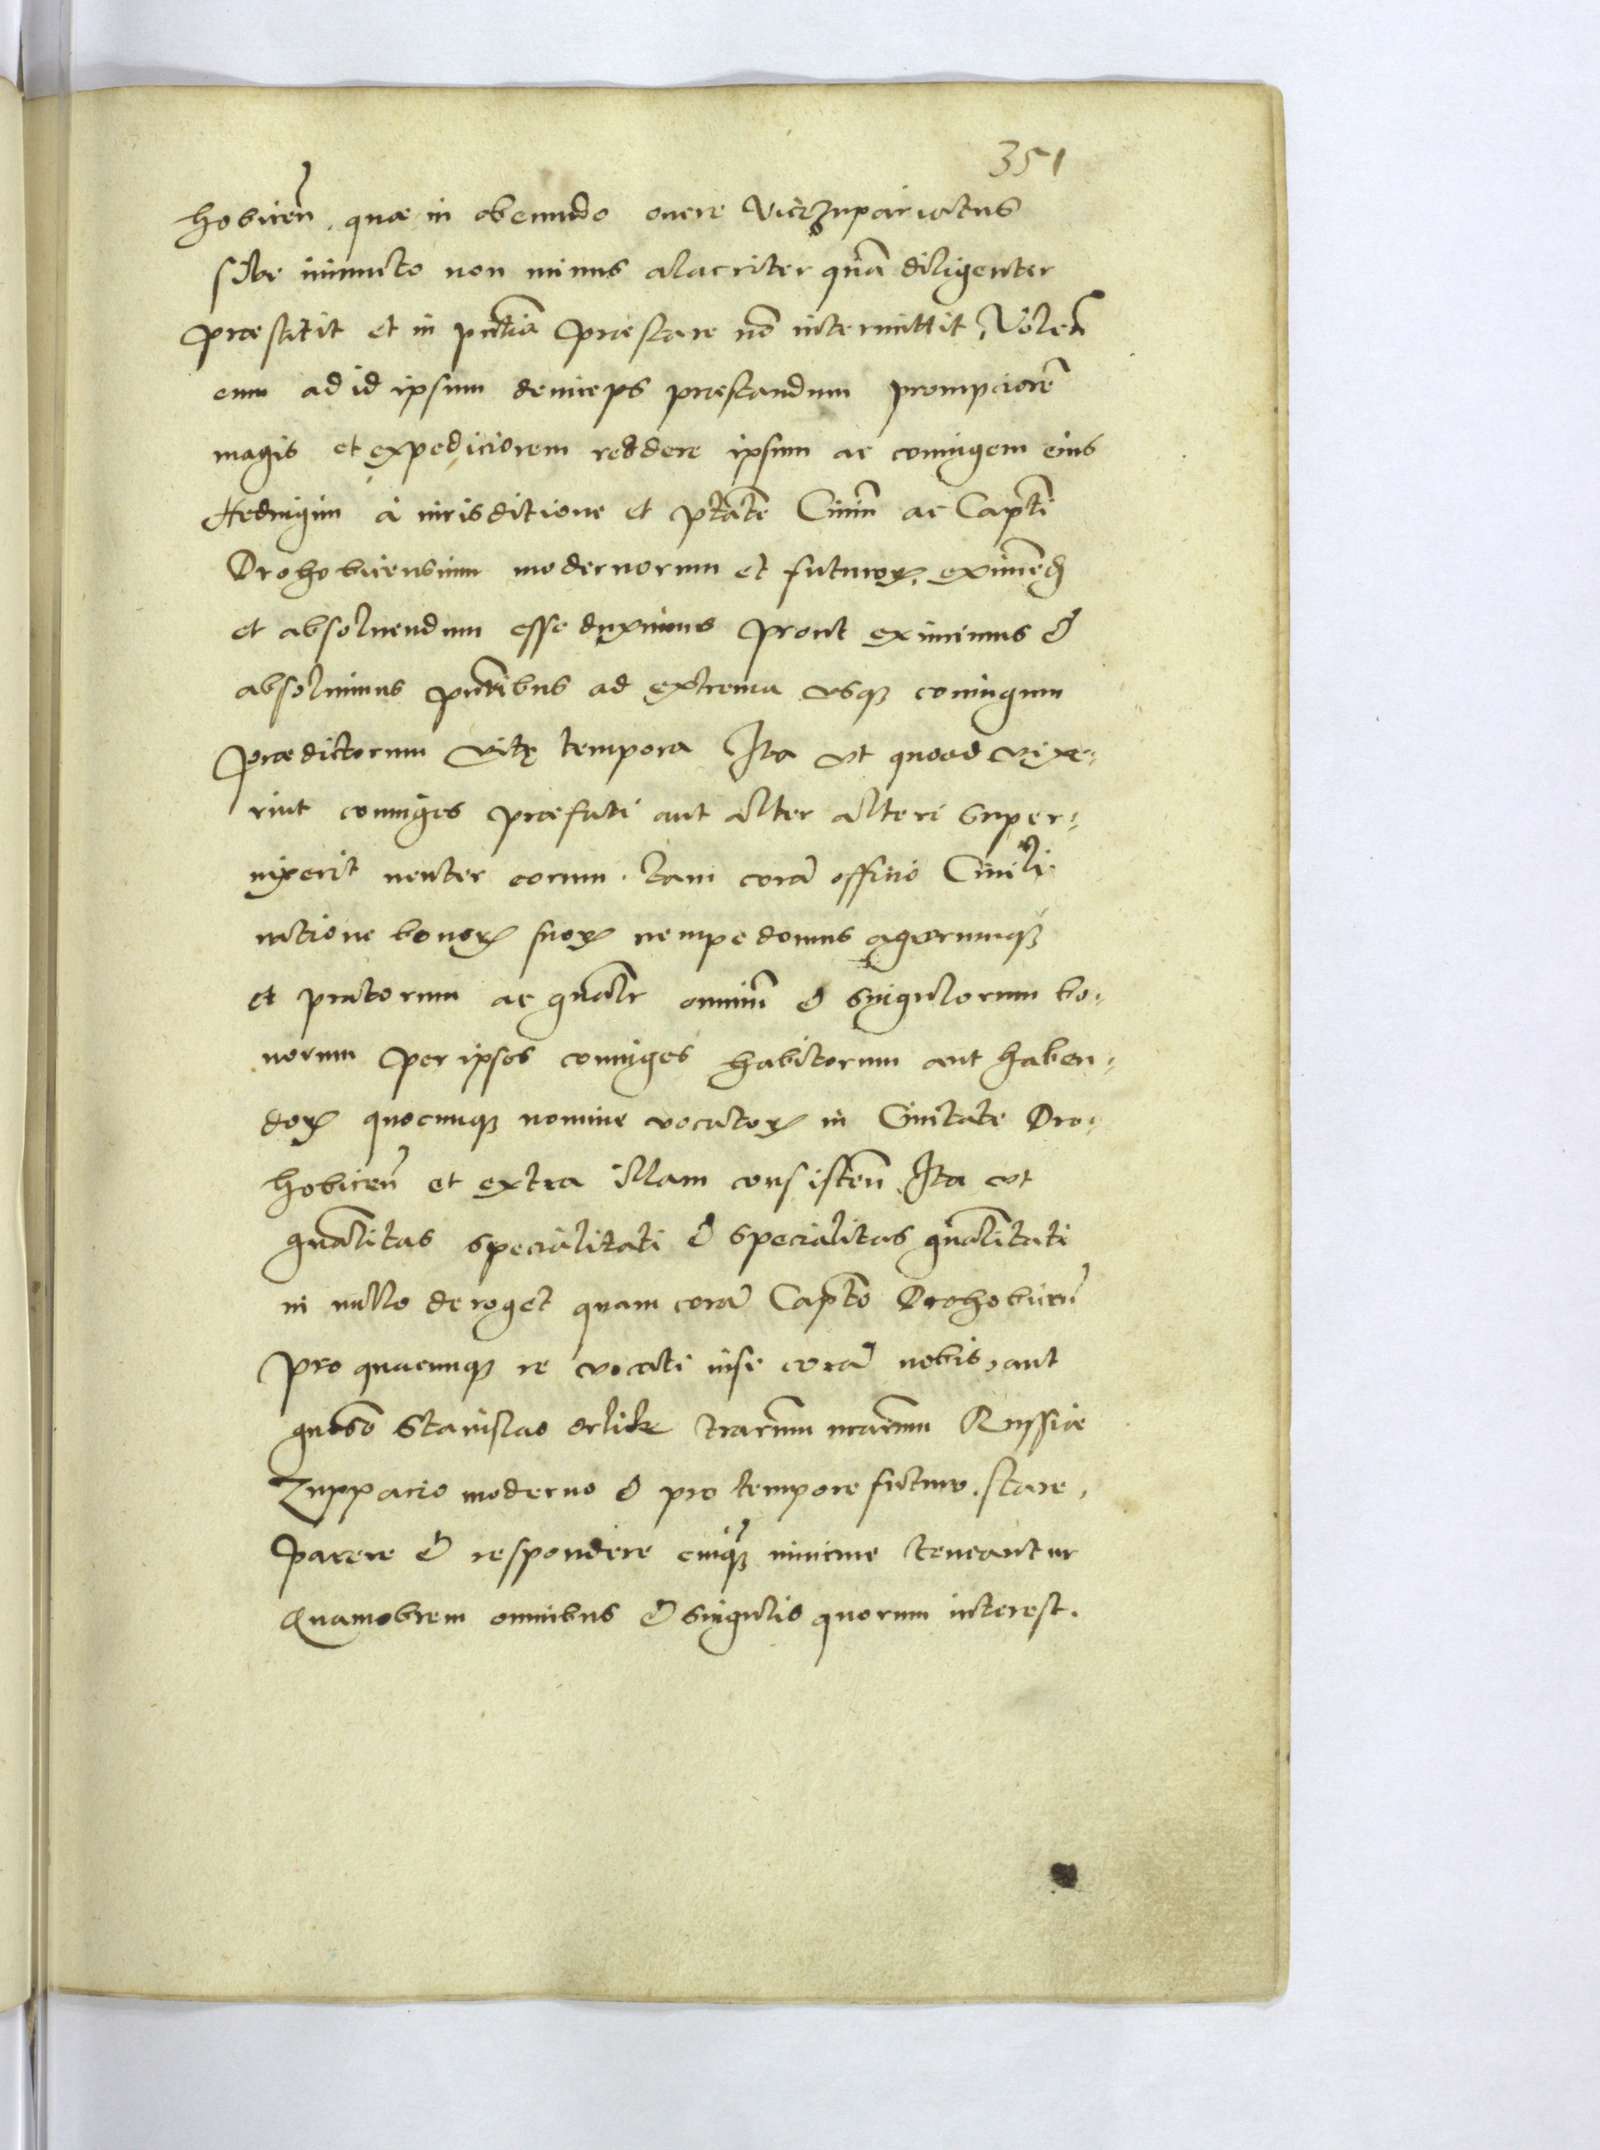 351
hobicen̄. quæ in obeundo onere Vicezupariatus
sibi iniuncto non minus alacriter quā diligenter
præstitit et in pn̄tia præstare nō intermittit, Volen̄
eum ad id ipsum deinceps præstandum prompciorē
magis et expediciorem reddere ipsum ac coniugem eius
Hedvigim à iurisditione et ptāte Ciuiū ac Capt̄i
Drohobicensium modernorum et futuroꝝ. eximend̄
et absoluendum esse duximus prout eximimus &
absoluimus pn̄tibus ad extrema vsqꝫ coniugum
prædictorum vitę tempora Ita vt quoad vixe-
rint coniuges præfati aut alter alteri super-
uixerit neuter eorum. tam corā officio Ciuili
ratione bonoꝝ suoꝝ nempe domus agrorumqꝫ
et pratorum ac gn̄alr omniū & singulorum bo-
norum per ipsos coniuges habitorum aut haben-
doꝝ quocunqꝫ nomine vocatoꝝ in Ciuitate Dro-
hobicen̄ et extra illam consisten̄ Ita vt
gn̄alitas specialitati & specialitas gn̄alitati
in nullo deroget quam corā Capt̄o Drohobicen̄
pro quacunqꝫ re vocati nisi corā nobis, aut
gn̄oso Stanislao orlik trarum nrarum Russiæ
Zuppario moderno & pro tempore futuro. stare,
parere & respondere cuiqꝫ minime teneantur
Quamobrem omnibus & singulis quorum interest.